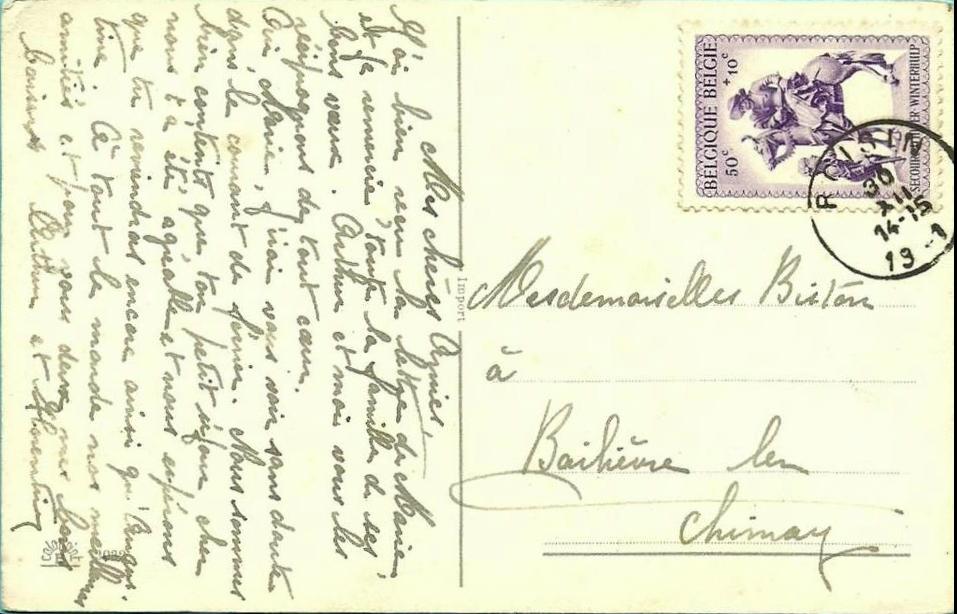 Mes chères Agnies,
J'ai bien recu la lettre de Marie,
et je remercie toute la famille de ses
bons veux. Arthur et moi vous les
réciproquons de tout cœur.
Oui Marie, j'irai vous voir sans doute
dans le courant de février. Nous sommes
bien contente que ton petit séjour chez
nous t'a été agréable et nous espérons
que tu reviendras encore ainsi qu'
tine. Ce tout le monde nos meilleures
amitiés et pour vous deux nos bons
baisers Arthur et Florentine
Import
BELGIQUE BELGIE
50c +10c
SECOURS WINTERHULP
ROISIN
30
XII
14-15
19 1
Mesdemoiselles Biston
à
Bailièvre lez
Chimay